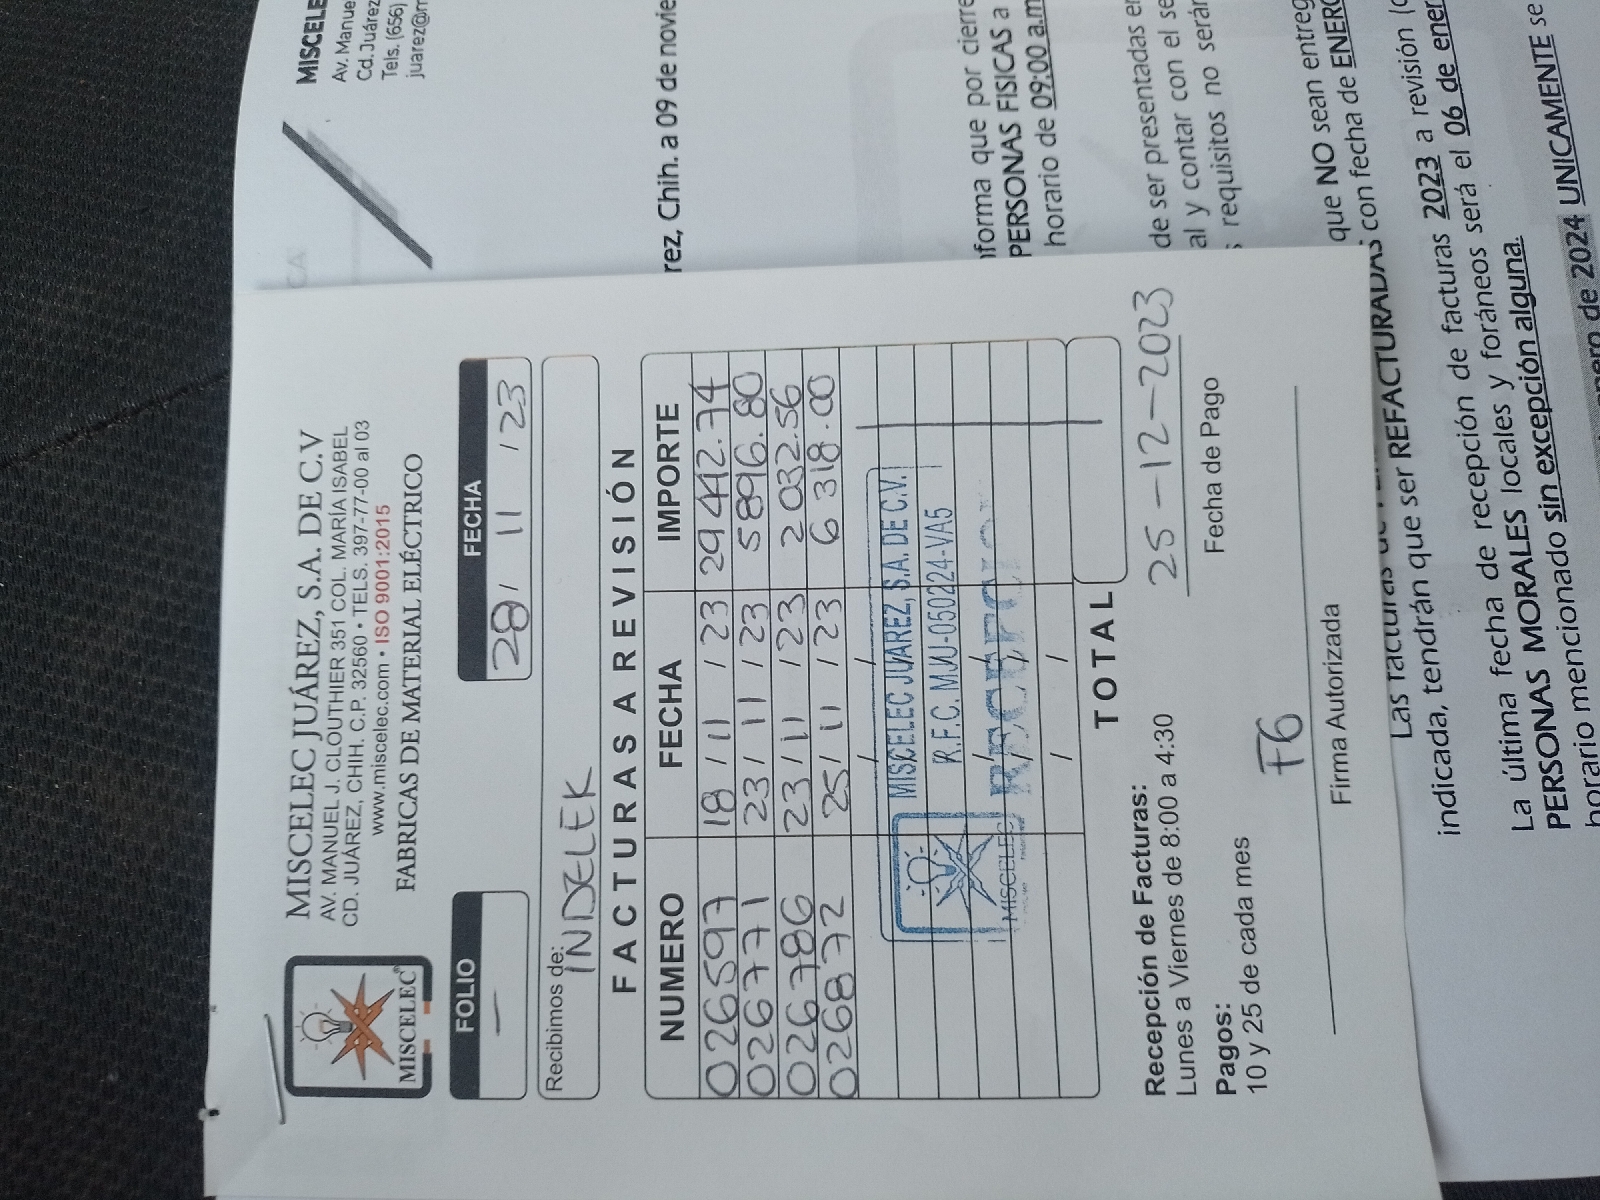 MISCELEC JUÁREZ, S.A. DE C.V
AV. MANUEL J. CLOUTHIER 351 COL. MARÍA ISABEL
CD. JUÁREZ, CHIH. C.P. 32560 • TELS. 397-77-00 al 03
www.miscelec.com • ISO 9001:2015
FABRICAS DE MATERIAL ELÉCTRICO
MISCELEC
FOLIO
FECHA
—
28 / 11 / 23
Recibimos de:
INDELEK
FACTURAS A REVISIÓN
NUMERO FECHA IMPORTE
026597 18 / 11 / 23 29442.74
026771 23 / 11 / 23 5896.80
026786 23 / 11 / 23 2032.56
026872 25 / 11 / 23 6318.00
/ /
MISCELEC JUAREZ, S.A. DE C.V.
R.F.C. MJU-050224-VA5
MISCELEC
/ /
/ /
/ /
TOTAL
Recepción de Facturas:
Lunes a Viernes de 8:00 a 4:30
25-12-2023
Fecha de Pago
Pagos:
10 y 25 de cada mes
F6
Firma Autorizada
MISCELE
Av. Manue
Cd. Juárez
Tels. (656)
juarez@m
rez, Chih. a 09 de novie
forma que por cierre
PERSONAS FISICAS a
horario de 09:00 a.m
de ser presentadas en
al y contar con el se
requisitos no serár
que NO sean entreg
con fecha de ENERO
Las facturas de
REFACTURADAS
indicada, tendrán que ser REFACTURADAS
La última fecha de recepción de facturas 2023 a revisión (c
PERSONAS MORALES locales y foráneos será el 06 de ener
horario mencionado sin excepción alguna.
nero de 2024 UNICAMENTE se